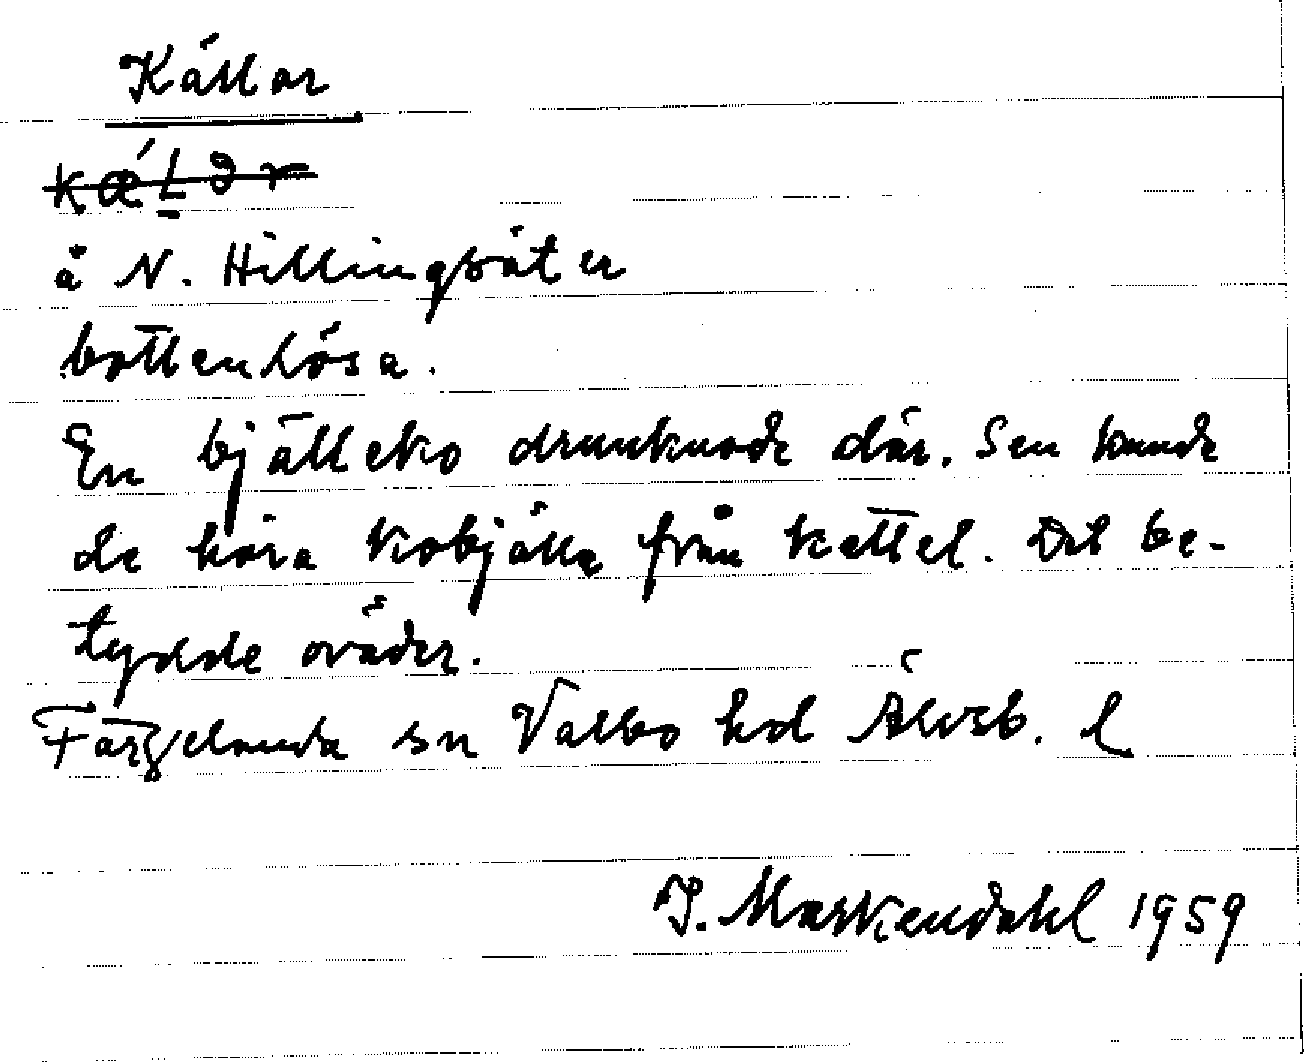 Källor
kǽLər
å N. Hillingsäter
bottenlösa.
En bjälleko drunknade där. Sen kunde
de höra kobjälla från kettel. Det be-
tydde oväder.
Färgelanda sn Valbo hd Älvsb. l
J. Markendahl 1959